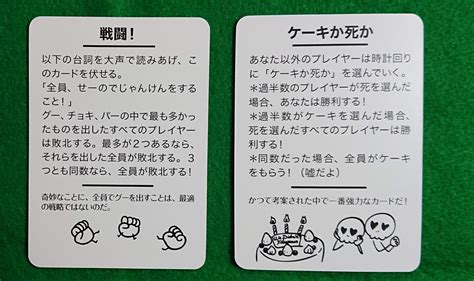 戦闘！
以下の台詞を大声で読みあげ、こ
のカードを伏せる。
「全員、せーのでじゃんけんをする
こと！」
グー、チョキ、パーの中で最も多かっ
たものを出したすべてのプレイヤー
は敗北する。最多が２つあるなら、
それらを出した全員が敗北する。３
つとも同数なら、全員が敗北する！
奇妙なことに、全員でグーを出すことは、最適
の戦略ではないのだ。
ケーキか死か
あなた以外のプレイヤーは時計回り
に「ケーキか死か」を選んでいく。
＊過半数のプレイヤーが死を選んだ
場合、あなたは勝利する！
＊過半数がケーキを選んだ場合、
死を選んだすべてのプレイヤーは勝
利する！
＊同数だった場合、全員がケーキ
をもらう！（嘘だよ）
かつて考案された中で一番強力なカードだ！